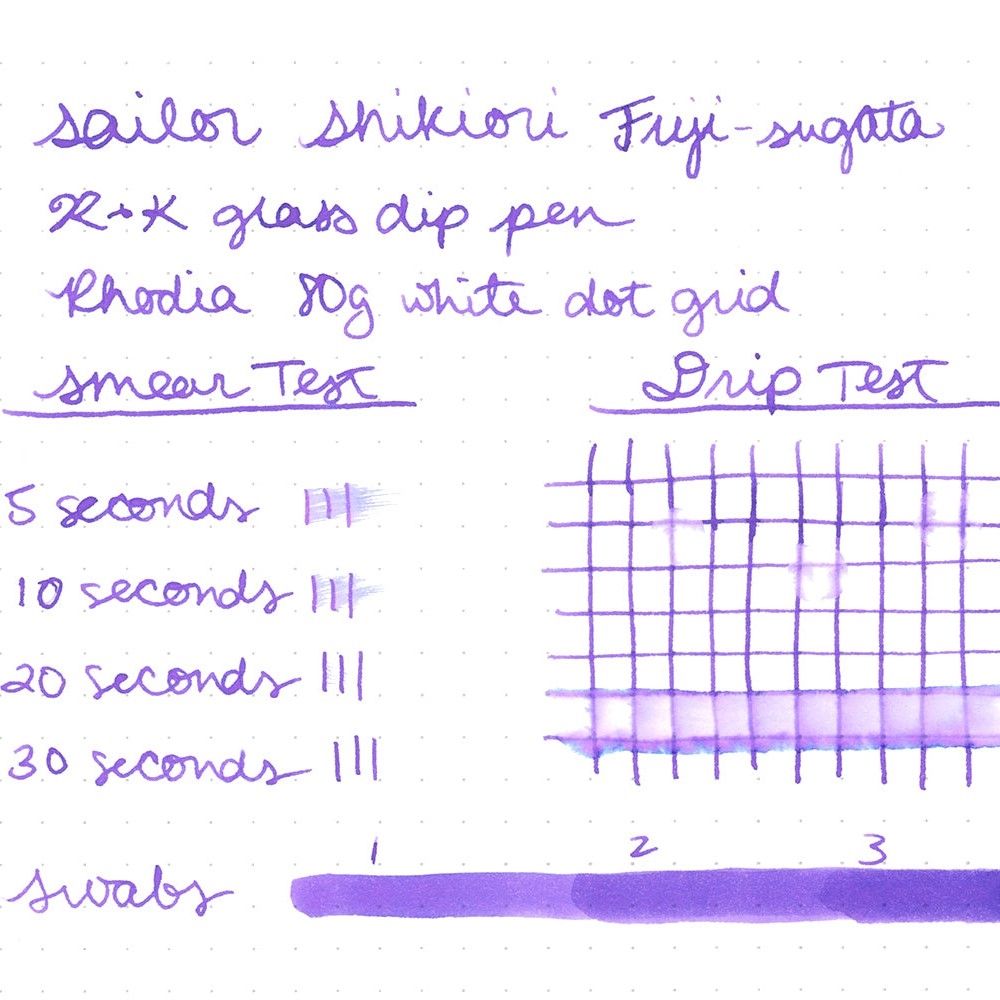 Sailor Shikiori Fuji-sugata
R+K glass dip pen
Rhodia 80g white dot grid
Smear Test
Drip Test
5 seconds
10 seconds
20 seconds
30 seconds
1 2 3
Swabs